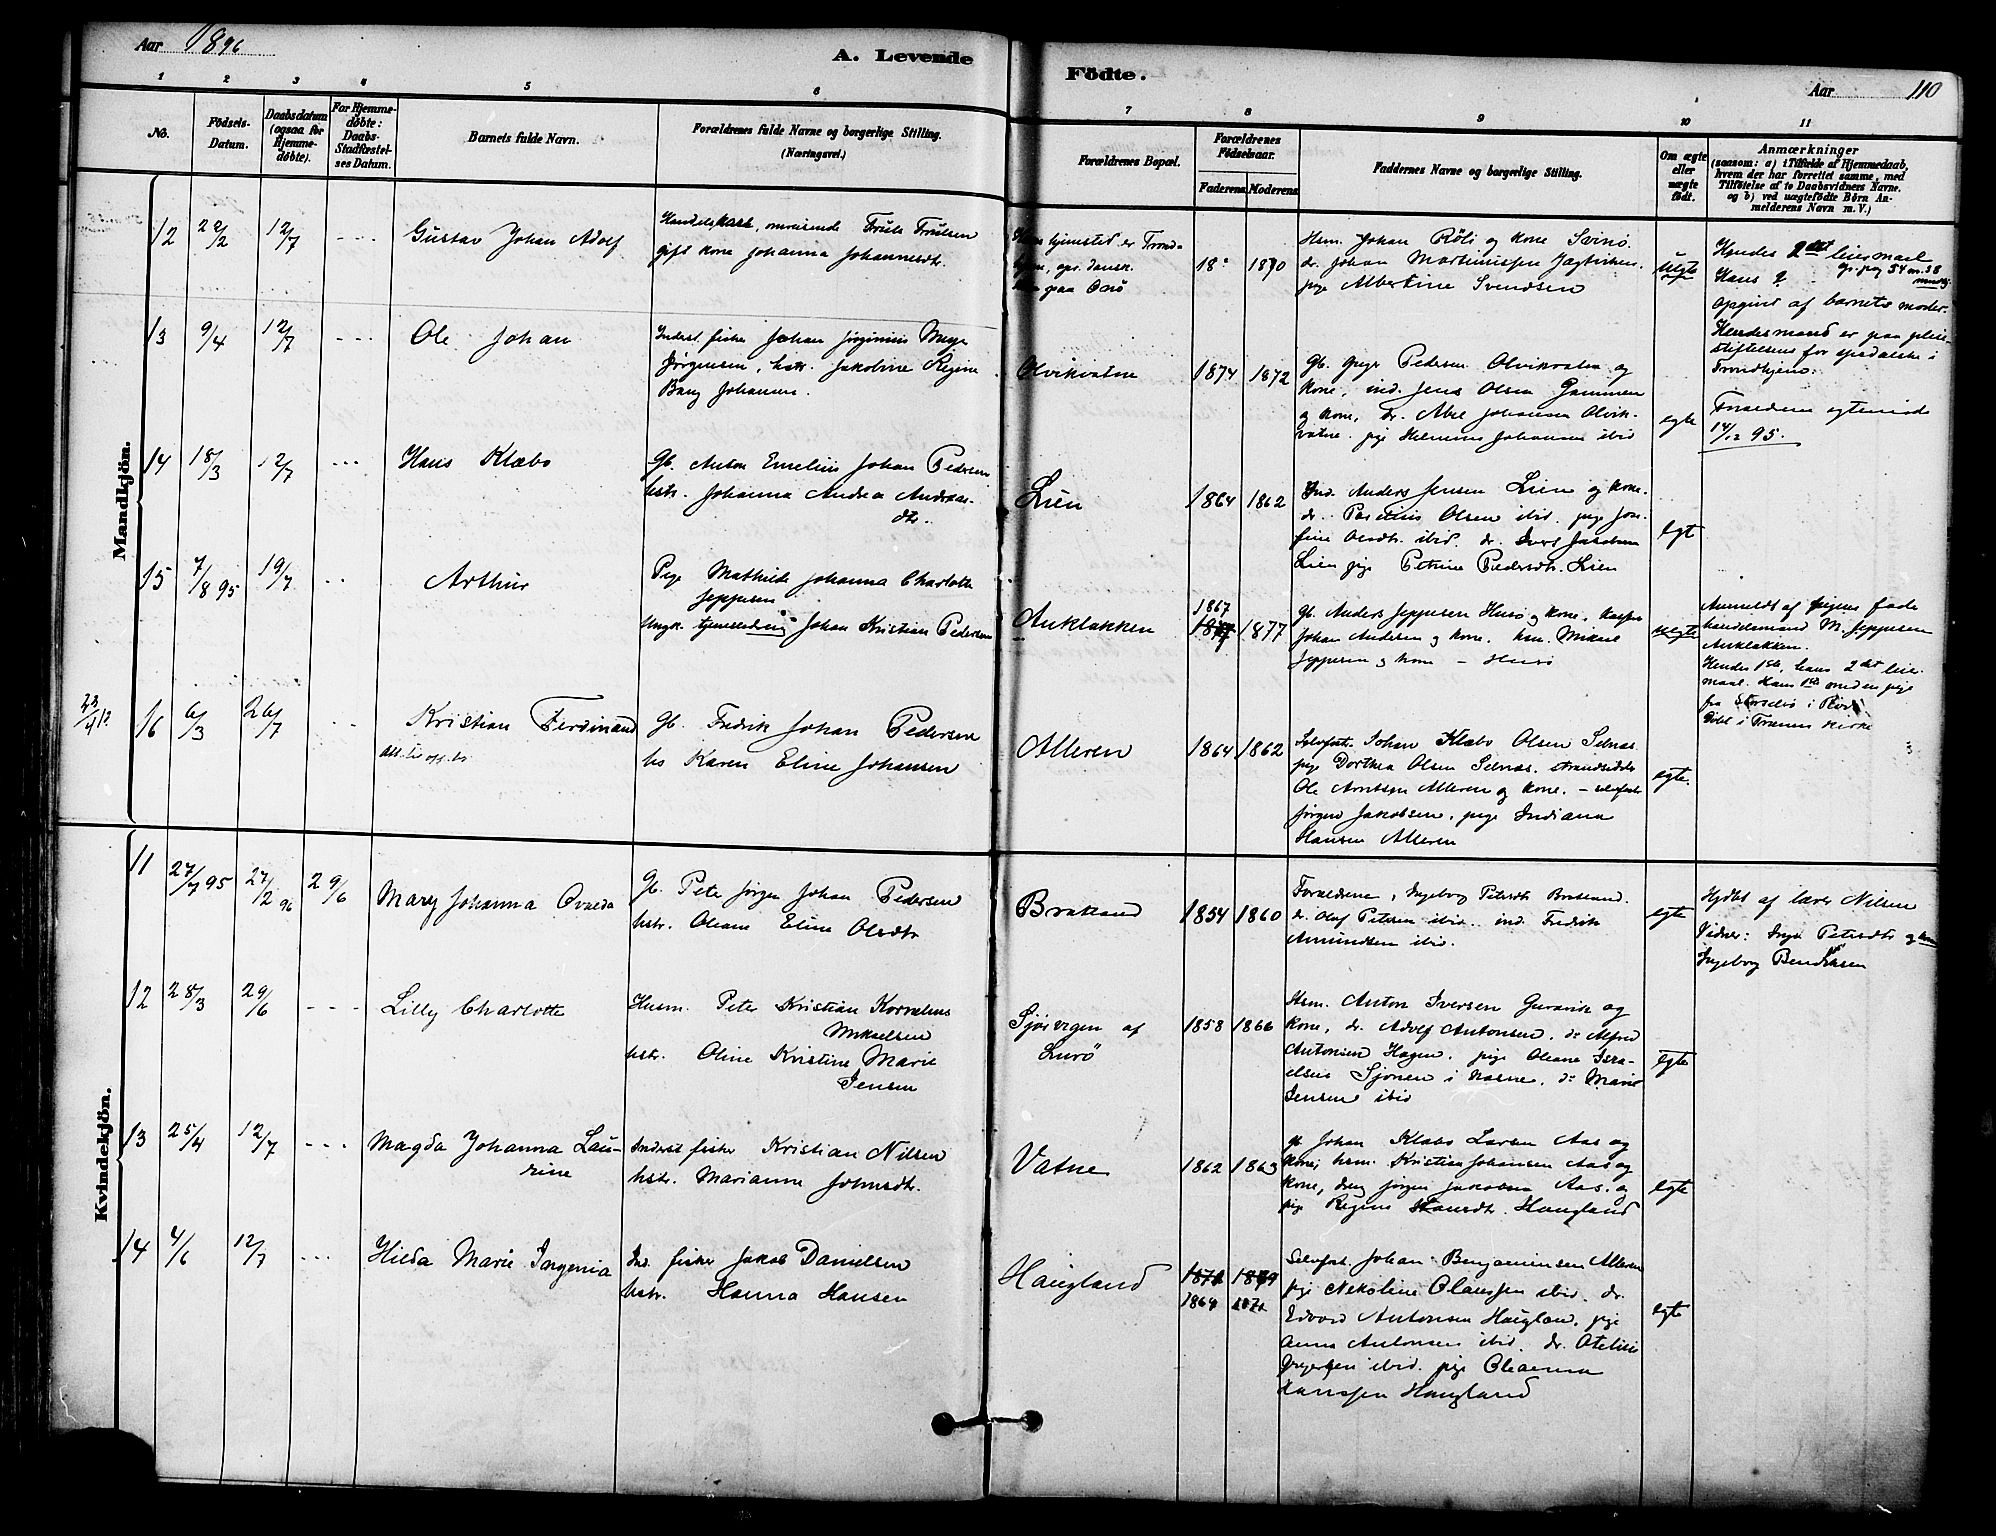 Aar 1896
A. Levende
Födte.
Aar
110
1 2 3 4 5 6
7 8 9 10 11
No.
Födsels-
Datum.
Daabsdatum
(ogsaa for
Hjemme-
døbte).
For Hjemme-
døbte:
Daabs-
Stadfæstel-
ses Datum.
Barnets fulde Navn.
Forældrenes fulde Navne og borgerlige Stilling.
(Næringsvei.)
Forældrenes Bopæl.
Forældrenes
Födselsaar.
Faderens. Moderens.
Faddernes Navne og borgerlige Stilling.
Om ægte
eller
uægte
født.
Anmærkninger
(saasom: a) i Tilfælde af Hjemmedaab,
hvem der har forrettet samme, med
Tilføielse af to Daabsvidners Navne.
og b) ved uægtefødte Börn An-
melderens Navn m. V.)
Mandkjön.
12 22/2 12/7 Gustav Johan Adolf
omreisende Truls Trulsen
gift kone Johanna Johannesdtr.
tjenested er Trond-
paa Onø
18 1870
Hsm. Johan Røli og kone Svinø.
dr. Johan Martinussen
pige Albertine Svendsen
Uegte
Hendes 2det leiermaal
Hans ?
opgivet af barnets moder.
Hendes mand er paa pleie-
stiftelsen for spedalske i
Trondhjem.
13 9/4 12/7 Ole Johan
Inderst fisker Johan Jørginius Meyer
Jørgensen, hstr. Jakobine Regine
Bang Johansen.
Olvikvatne 1874 1872
Gb. Pedersen Olvikvatn og
kone, ind. Jens Olsen Gammen
og kone, dr. Abel Johansen Olvik-
vatne. pige Helmine Johansen ibid
egte
Foraeldrene egteviede
14/12 95.
14 18/3 12/7 Hans Klæbo
Gb. Anton Emelius Johan Pedersen
hstr. Johanna Andrea Andreas-
dtr.
Lien 1864 1862
Ind. Anders Jensen Lien og kone.
dr. Olsen ibid. pige Jose-
fine Olsdtr. ibid. dr. Jakobsen
Lien pige Petrine Pedersdtr. Lien
egt
15 7/8 95 19/7 Arthur
Pige Mathilde Johanna Charlotte
Jeppesen
Ungk. Johan Kristian Pedersen
Anklakken 1867 1877
gb. Anders Jeppesen Husø og kone.
Johan Andersen og kone. hsm. Mikael
Jeppesen og kone - Husø
uegte
Anmeldt af pigens fader
handelsmand M. Jeppesen
Anklakken.
Hendes 1ste, hans 2det leier-
maal. Hans 1ste med en pige
fra Storselsø i Rødø
Døbt i Trænens kirke
16 6/3 26/7 Kristian Ferdinand
gb. Fredrik Johan Pedersen
hs Karen Eline Johansen
Alleren 1864 1862
Selvfostr. Johan Klæbo Olsen Selnæs.
pige Dorthea Olsen Selnæs. strandsidder
Ole Arntsen Alleren og kone. - selvfostr.
Jørgen Jakobsen, pige Indiana
Hansen Alleren
egte.
Kvindekjön.
11 27/7 95 27/2 96 29/6 Mary Johanna Ovneda
gb. Peter Jørgen Johan Pedersen
hstr. Oleane Eline Olsdtr
Bratland 1854 1860
Foraeldrene, Ingeborg Petersdtr Bratland.
dr. Olaf Petersen ibid. ind. Fredrik
Amundsen ibid.
egte
Hjdbt af lærer Nilsen
Vidner: Inga Petersdtr og
Ingeborg Bendiksen
12 28/3 29/6 Lilly Charlotte
Husm. Peter Kristian Kornelius
Mikaelsen
hstr. Oline Kristine Marie
Jensen
Sjøsvegen af
Lurø
1858 1866
Hsm. Anton Iversen og
kone, dr. Adolf Antonsen. dr Alfred
Antonsen Hagen. pige Oleane Isra-
elsen Sjonen i Næsne. dr Marie
Jensen ibid
egte
13 25/4 12/7 Magda Johanna Lau-
rine
Inderst fisker Kristian Nilsen
hstr. Marianne Johnsdtr.
Vatne 1862 1863
gb Johan Klæbo Larsen Aas og
kone; hsm. Kristian Johansen Aas og
kone, dreng Jørgen Jakobsen Aas. og
pige Regine Hansdtr. Haugland
egte
14 4/6 12/7 Hilda Marie Ingenia
Ind. fisker Jakob Danielsen
hstr. Hanna Hansen
Haugland 1864
Selvfost. Johan Benjaminsen Alleren
pige Nikoline Olaussen ibid. dr.
Edvard Antonsen Hauglan. pige
Anna Antonsen ibid. dr. Otelius
ibid. pige Oleanna
Hanssen Haugland
egte